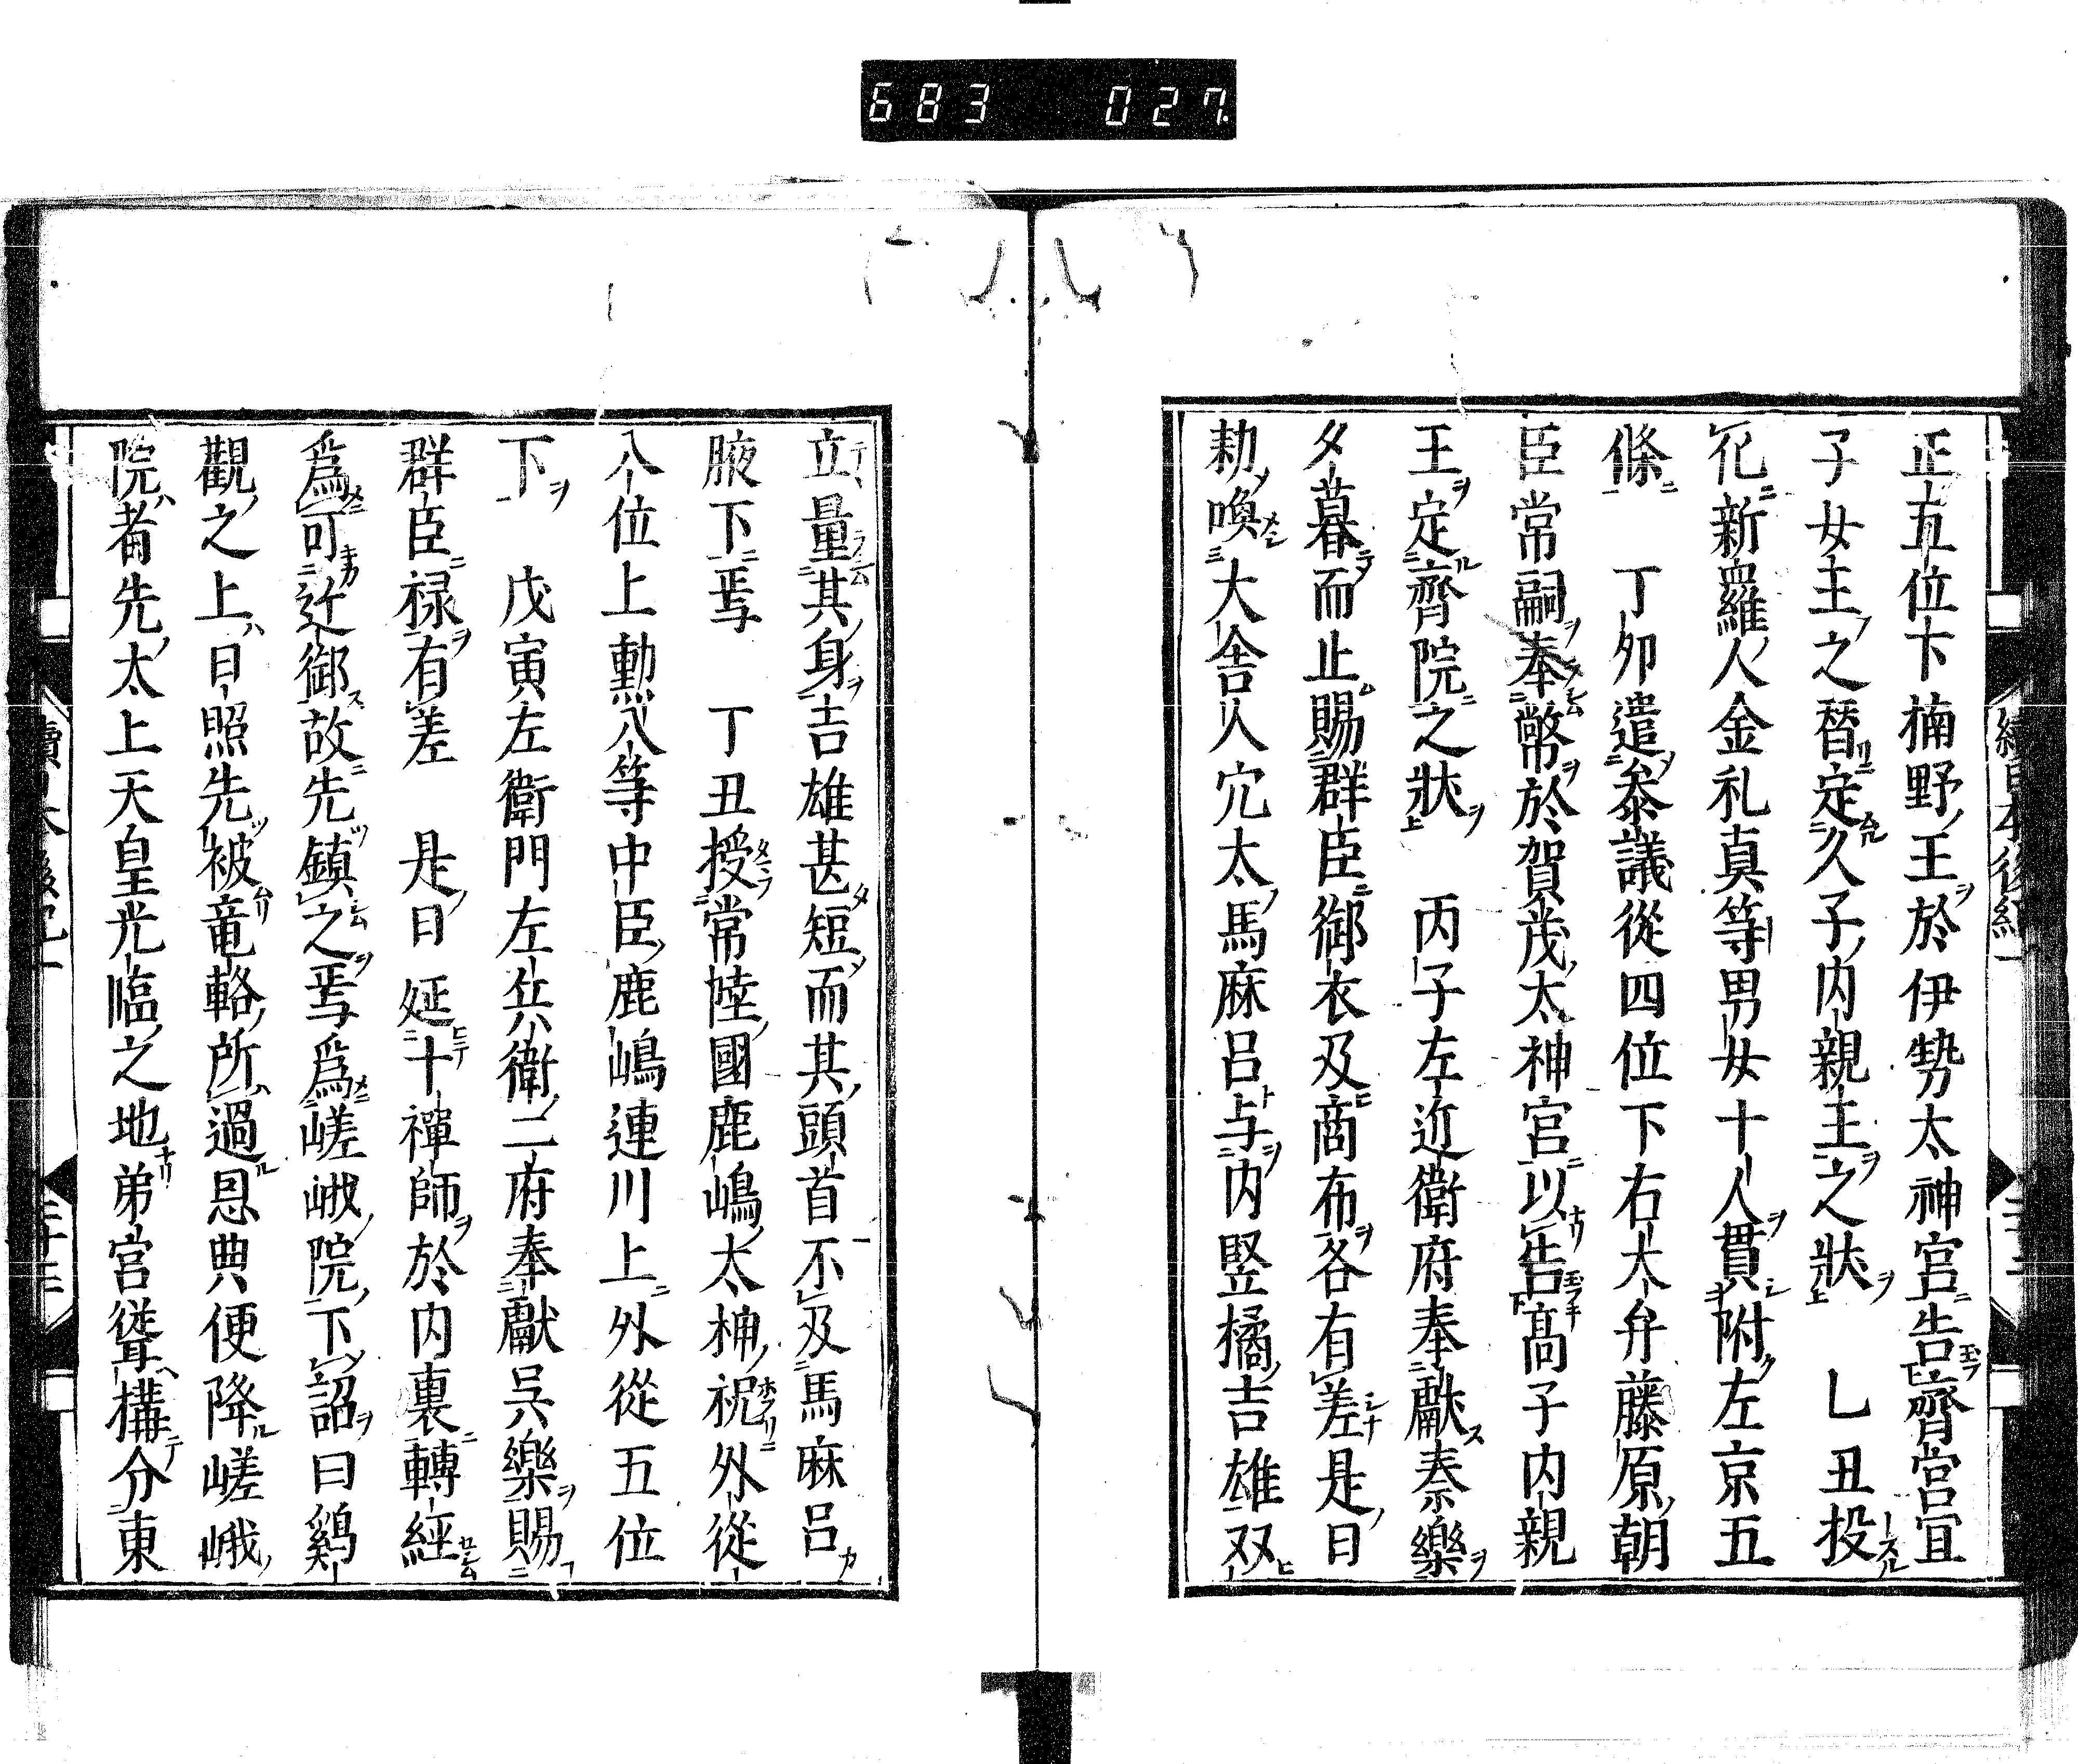 683 027
正五位下楠野王於伊勢太神宮告齊宮宜
子女王之替定久子内親王之狀　乚丑投
化新羅人金礼真等男女十人貫附左京五
條　丁夘遣叅議從四位下右大弁藤原朝
臣常嗣奉幣於賀茂太神宮以告髙子内親
王定齊院之狀　丙子左近衛府奉獻奏樂
夕暮而止賜群臣御衣及商布各有差是日
勅喚大舎人穴太馬麻呂与内竪橘吉雄双
立量其身吉雄甚短而其頭首不及馬麻呂
腋下焉　丁丑授常陸國鹿嶋太神祝外從
八位上勳八等中臣鹿嶋連川上外從五位
下　戊寅左衛門左兵衛二府奉獻呉樂賜
群臣禄有差　是日延十禪師於内裏轉經
爲可近御故先鎮之焉爲嵯峨院下詔曰鷄
觀之上日照先被竜輅所過恩典便降嵯峨
院者先太上天皇光臨之地弟宮聳構分東